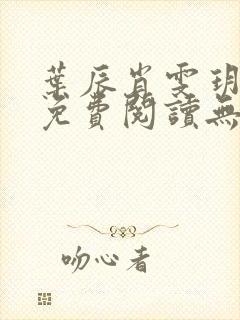 葉辰肖雯玥
免費閱讀無
吻心者